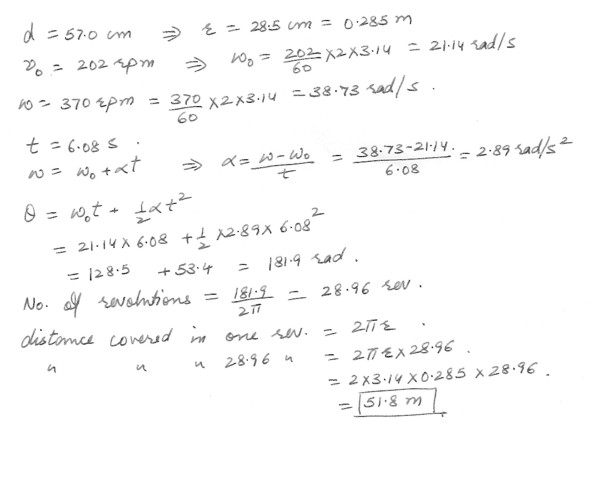 d = 57.0 cm ⇒ r = 28.5 cm = 0.285 m
ν₀ = 202 rpm ⇒ ω₀ = 202/60 × 2 × 3.14 = 21.14 rad/s
ω = 370 rpm = 370/60 × 2 × 3.14 = 38.73 rad/s.
t = 6.08 s.
ω = ω₀ + αt ⇒ α = ω-ω₀/t = 38.73-21.14./6.08 = 2.89 rad/s²
θ = ω₀t + 1/2 αt²
= 21.14 × 6.08 + 1/2 × 2.89 × 6.08²
= 128.5 + 53.4 = 181.9 rad.
No. of revolutions = 181.9/2π = 28.96 rev.
distance covered in one rev. = 2πr.
" " " 28.96 " = 2πr × 28.96.
= 2 × 3.14 × 0.285 × 28.96.
= 51.8 m